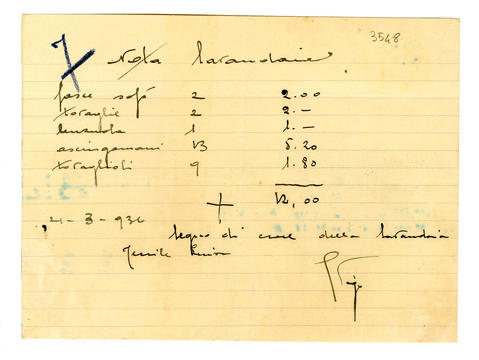 3548
Nota lavandaie
fasce sofà 2 2.00
tovaglie 2 2.–
lenzuola 1 1.–
asciugamani 13 5.20
tovaglioli 9 1.80
12,00
21-3-936
segno di croce della lavandaia